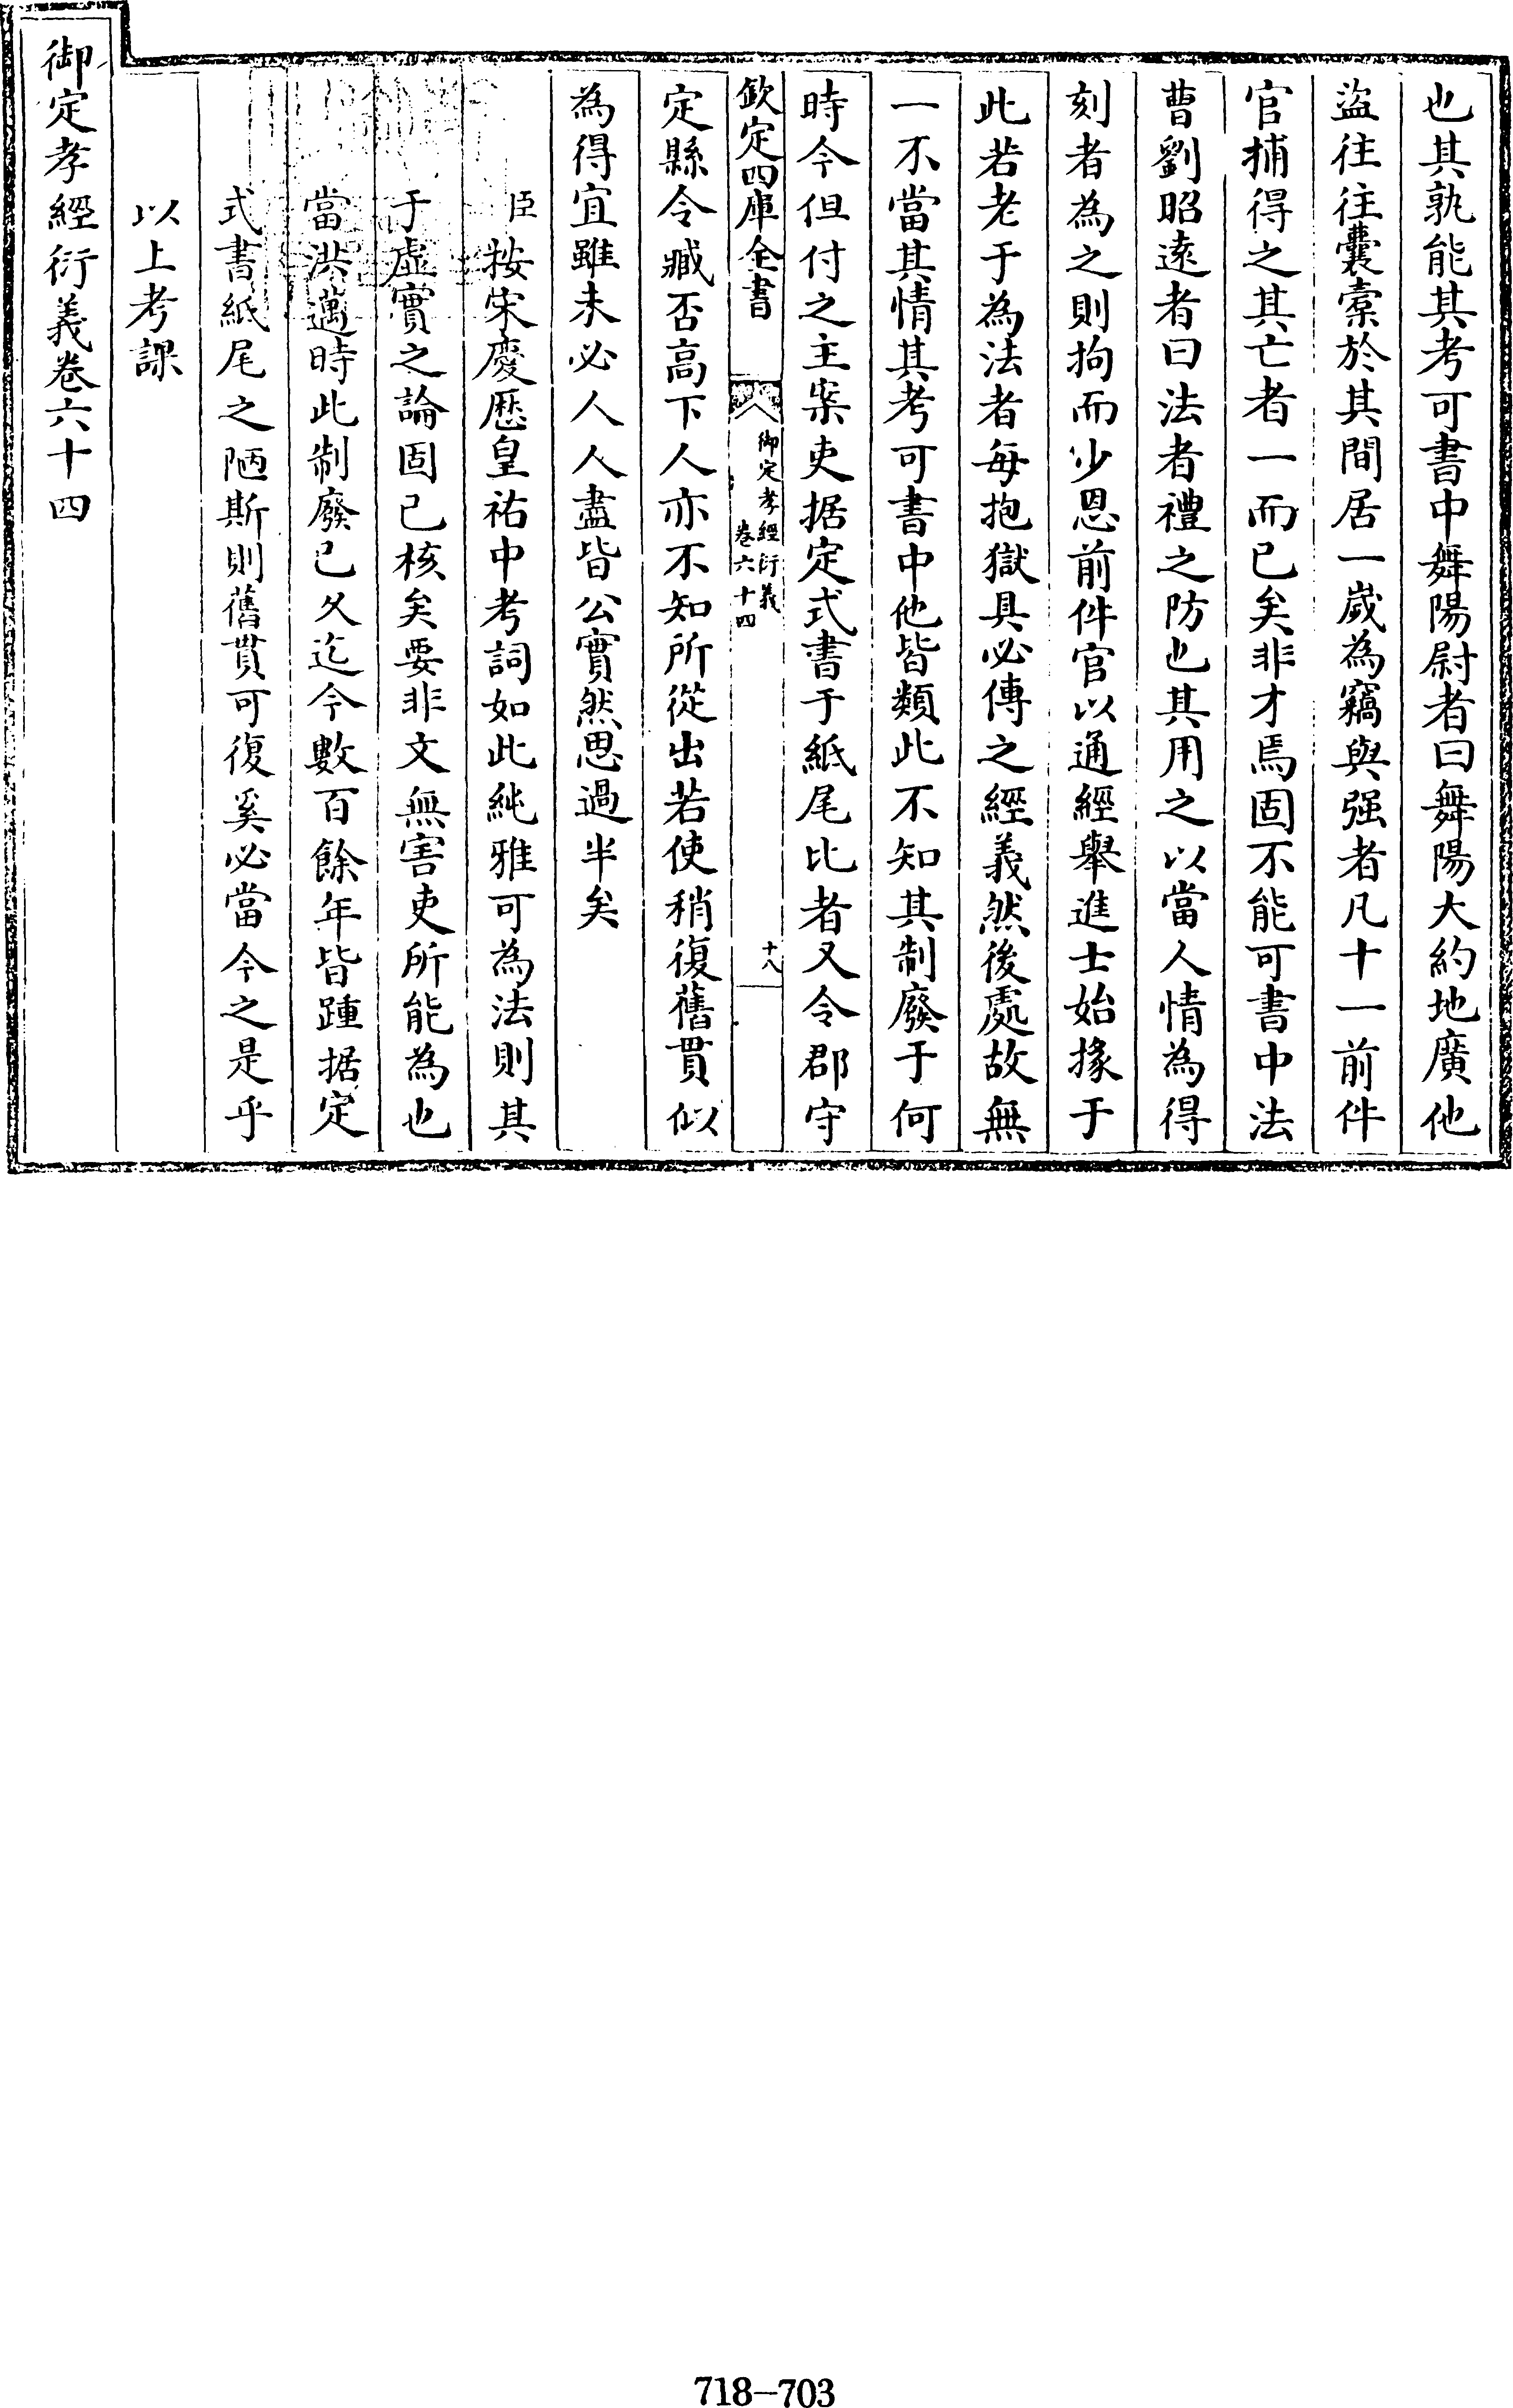 也其孰能其考可書中舞陽尉者曰舞陽大約地廣他
盜往往囊橐於其間居一嵗為竊與强者凡十一前件
官捕得之其亡者一而已矣非才焉固不能可書中法
曹劉昭遠者曰法者禮之防也其用之以當人情為得
刻者為之則拘而少恩前件官以通經舉進士始掾于
此若老于為法者每抱獄具必傳之經義然後處故無
一不當其情其考可書中他皆類此不知其制廢于何
時今但付之主案吏据定式書于紙尾比者又令郡守
欽定四庫全書
御定孝經衍義
卷六十四
十八
定縣令臧否高下人亦不知所從出若使稍復舊貫似
為得宜雖未必人人盡皆公實然思過半矣
臣按宋慶歴皇祐中考詞如此純雅可為法則其
于虛實之論固已核矣要非文無害吏所能為也
當洪邁時此制廢已久迄今數百餘年皆踵据定
式書紙尾之陋斯則舊貫可復奚必當今之是乎
以上考課
御定孝經衍義卷六十四
718-703